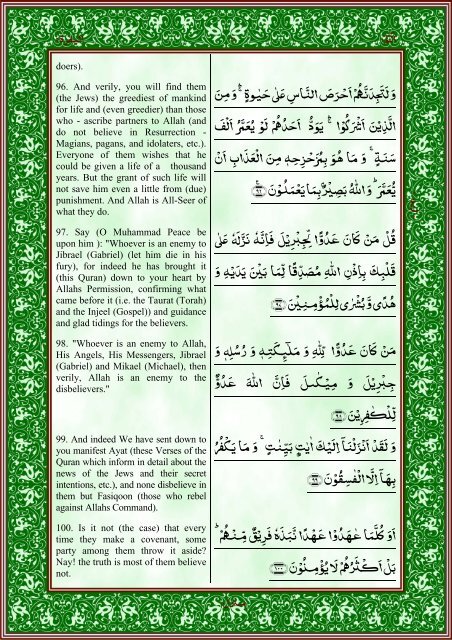 doers).
96. And verily, you will find them
(the Jews) the greediest of mankind
for life and (even greedier) than those
who - ascribe partners to Allah (and
do not believe in Resurrection -
Magians, pagans, and idolaters, etc.).
Everyone of them wishes that he
could be given a life of a thousand
years. But the grant of such life will
not save him even a little from (due)
punishment. And Allah is All-Seer of
what they do.
وَلَتَجِدَنَّهُمْ اَحْرَصَ النَّاسِ عَلٰى حَيٰوةٍ ۛۚ وَمِنَ
الَّذِيْنَ اَشْرَكُوْا ۛۚ يَوَدُّ اَحَدُهُمْ لَوْ يُعَمَّرُ اَلْفَ
سَنَةٍ ۚ وَمَا هُوَ بِمُزَحْزِحِهٖ مِنَ الْعَذَابِ اَنْ
يُّعَمَّرَ ؕ وَاللّٰهُ بَصِيْرٌۢ بِمَا يَعْمَلُوْنَ ﴿۹۶﴾
97. Say (O Muhammad Peace be
upon him ): "Whoever is an enemy to
Jibrael (Gabriel) (let him die in his
fury), for indeed he has brought it
(this Quran) down to your heart by
Allahs Permission, confirming what
came before it (i.e. the Taurat (Torah)
and the Injeel (Gospel)) and guidance
and glad tidings for the believers.
قُلْ مَنْ كَانَ عَدُوًّا لِّجِبْرِيْلَ فَاِنَّهٗ نَزَّلَهٗ عَلٰى
قَلْبِكَ بِاِذْنِ اللّٰهِ مُصَدِّقًا لِّمَا بَيْنَ يَدَيْهِ وَ
هُدًى وَّبُشْرٰى لِلْمُؤْمِنِيْنَ ﴿۹۷﴾
98. "Whoever is an enemy to Allah,
His Angels, His Messengers, Jibrael
(Gabriel) and Mikael (Michael), then
verily, Allah is an enemy to the
disbelievers."
مَنْ كَانَ عَدُوًّا لِّلّٰهِ وَمَلٰٓئِكَتِهٖ وَرُسُلِهٖ وَ
جِبْرِيْلَ وَمِيْكٰىلَ فَاِنَّ اللّٰهَ عَدُوٌّ
لِّلْكٰفِرِيْنَ ﴿۹۸﴾
99. And indeed We have sent down to
you manifest Ayat (these Verses of the
Quran which inform in detail about the
news of the Jews and their secret
intentions, etc.), and none disbelieve in
them but Fasiqoon (those who rebel
against Allahs Command).
وَلَقَدْ اَنْزَلْنَاۤ اِلَيْكَ اٰيٰتٍۭ بَيِّنٰتٍ ۚ وَمَا يَكْفُرُ
بِهَاۤ اِلَّا الْفٰسِقُوْنَ ﴿۹۹﴾
100. Is it not (the case) that every
time they make a covenant, some
party among them throw it aside?
Nay! the truth is most of them believe
not.
اَوَكُلَّمَا عٰهَدُوْا عَهْدًا نَّبَذَهٗ فَرِيْقٌ مِّنْهُمْ ؕ
بَلْ اَكْثَرُهُمْ لَا يُؤْمِنُوْنَ ﴿۱۰۰﴾